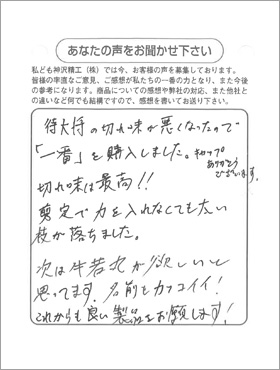 あなたの声をお聞かせ下さい
私ども神沢精工（株）では今、お客様の声を募集しております。
皆様の率直なご意見、ご感想が私たちの一番の力となり、また今後
の参考になります。商品についての感想や弊社の対応、また他社と
の違いなど何でも結構ですので、感想を書いてお送り下さい。
侍大将の切れ味が悪くなったので
「一番」を購入しました。キャップ
ありがとう
ございます。
切れ味は最高!!
剪定で力を入れなくても太い
枝が落ちました。
次は牛若丸が欲しいと
思ってます。名前もカッコイイ!
これからも良い製品をお願します!